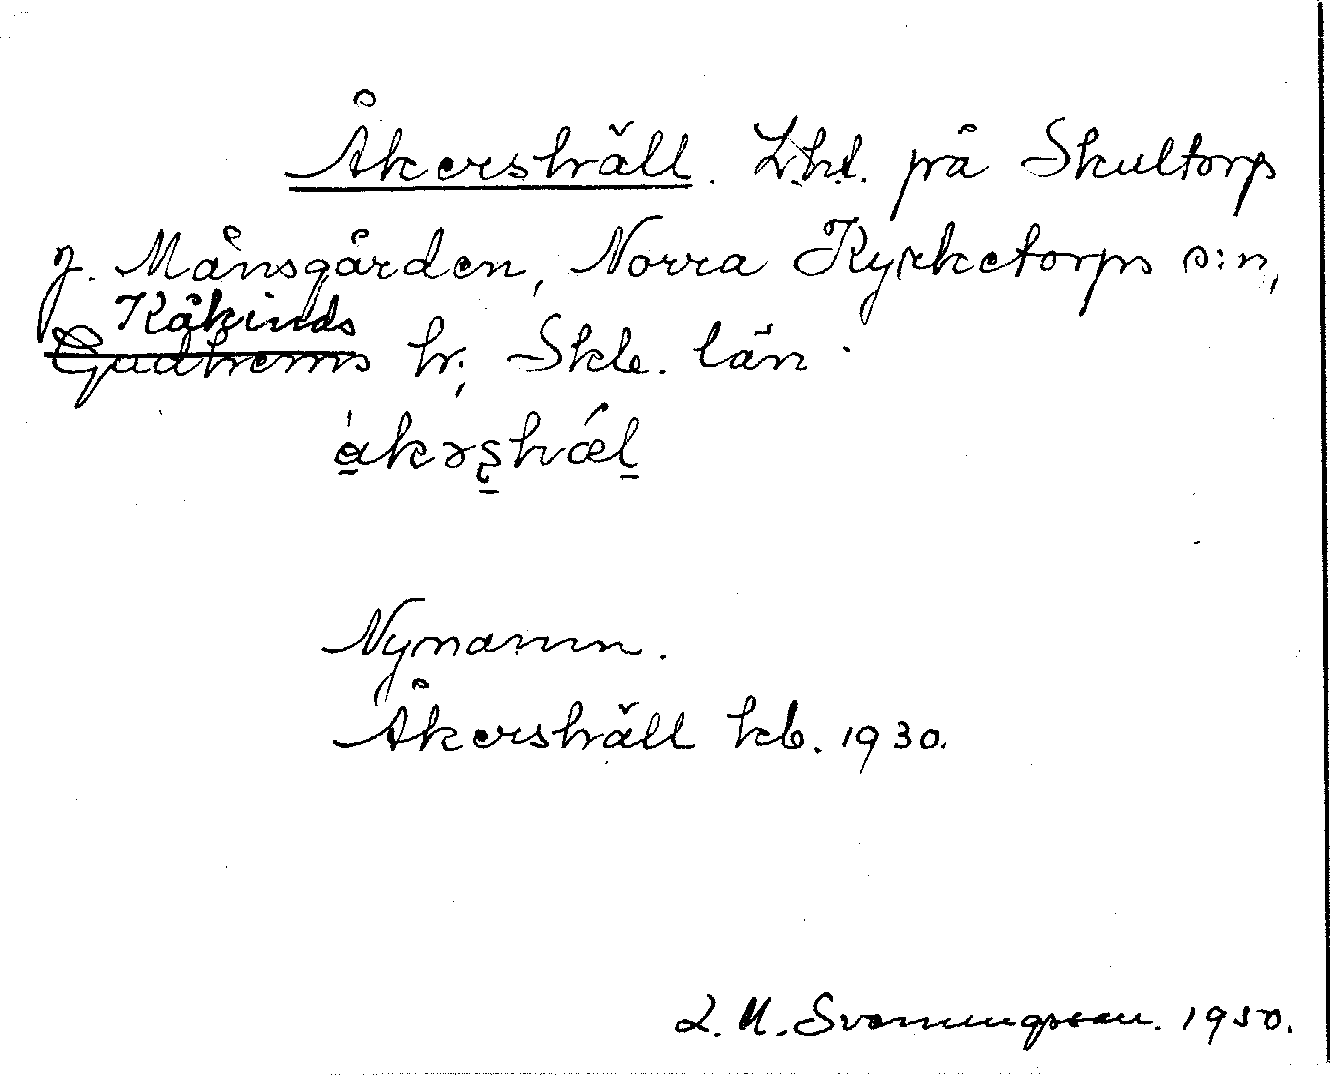 Åkershäll. Lht. på Skultorp
J. Månsgården, Norra Kyrketorps s:n,
Kåkinds
Gudhems hr, Skb. län.
åkərshäl
Nynamn.
Åkershäll kb. 1930.
L. M. Svenungsson. 1950.